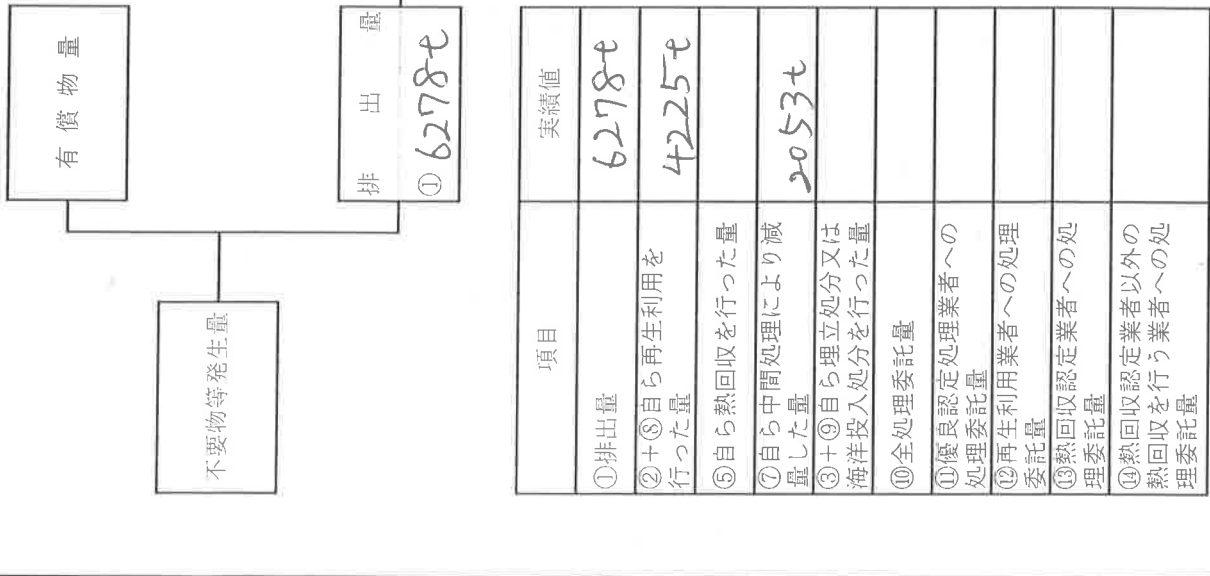 有償物量
不要物等発生量
排出量
① 6278t
項目
実績値
①排出量
6278t
②+⑧自ら再生利用を
行った量
4225t
⑤自ら熱回収を行った量
⑦自ら中間処理により減
量した量
2053t
③+⑨自ら埋立処分又は
海洋投入処分を行った量
⑩全処理委託量
⑪優良認定処理業者への
処理委託量
⑫再生利用業者への処理
委託量
⑬熱回収認定業者への処
理委託量
⑭熱回収認定業者以外の
熱回収を行う業者への処
理委託量